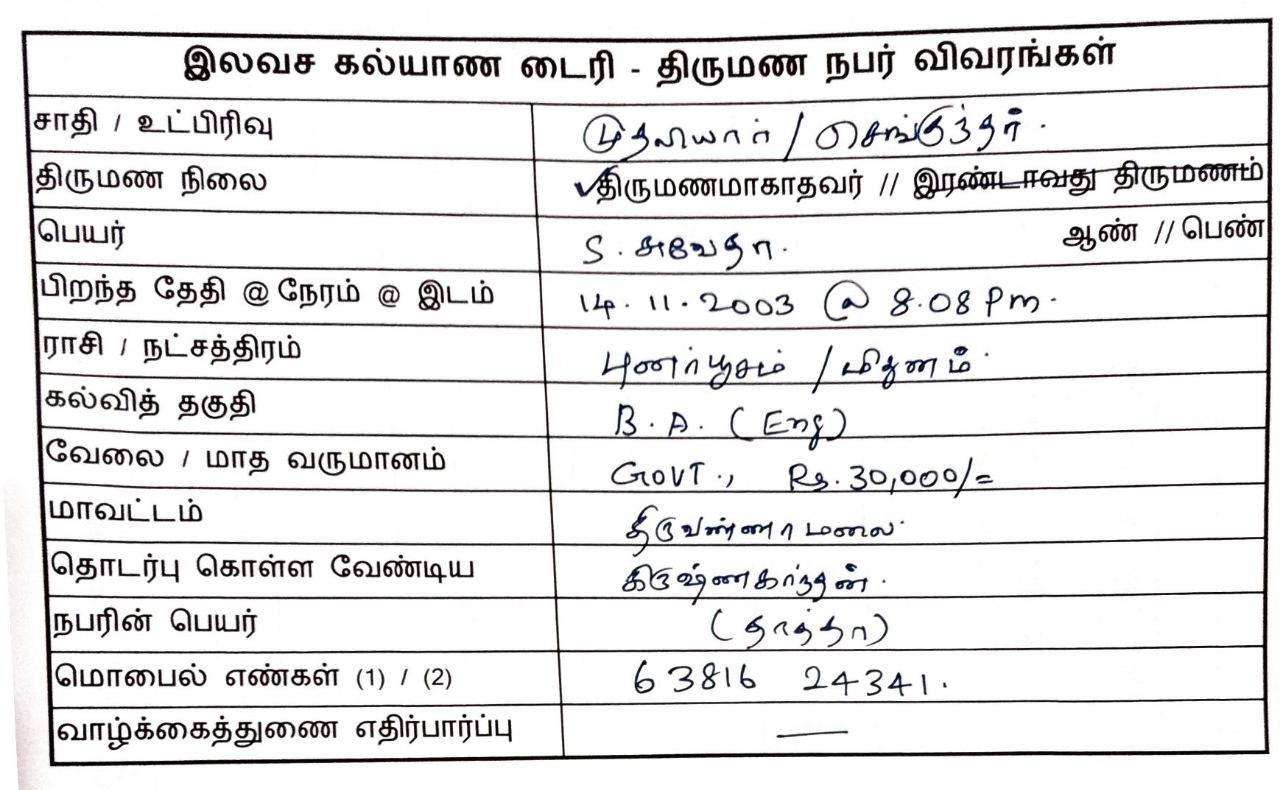 இலவச கல்யாண டைரி - திருமண நபர் விவரங்கள்
சாதி / உட்பிரிவு முதலியார் / செங்குந்தர்.
திருமண நிலை ✓திருமணமாகாதவர் // இரண்டாவது திருமணம்
பெயர் S. சுவேதா. ஆண் // பெண்
பிறந்த தேதி @ நேரம் @ இடம் 14.11.2003 @ 8.08 Pm.
ராசி / நட்சத்திரம் புனர்பூசம் / மிதுனம்.
கல்வித் தகுதி B.A. (Eng)
வேலை / மாத வருமானம் GOVT., Rs. 30,000/=
மாவட்டம் திருவண்ணாமலை.
தொடர்பு கொள்ள வேண்டிய கிருஷ்ணகாந்தன்.
நபரின் பெயர் (தாத்தா)
மொபைல் எண்கள் (1) / (2) 63816 24341.
வாழ்க்கைத்துணை எதிர்பார்ப்பு —